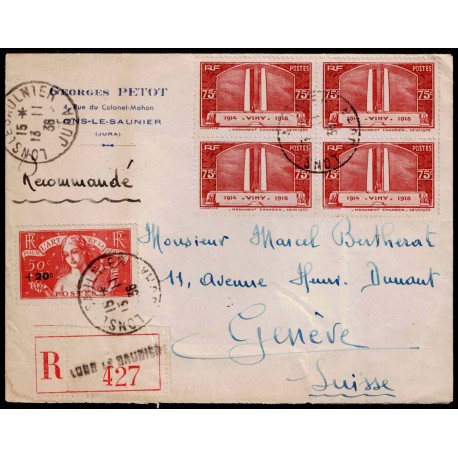 GEORGES PETOT
4, Rue du Colonel-Mahon
LONS-LE-SAUNIER
(JURA)
LONS LE SAUNIER JURA
15 *
13 - 11
36
Recommandé
RF POSTES
75c 75c
1914 - VIMY - 1918
MONUMENT CANADIEN
RF POSTES
75c 75c
1914 - VIMY - 1918
MONUMENT CANADIEN
RF POSTES
75c 75c
1914 - VIMY - 1918
MONUMENT CANADIEN
RF POSTES
75c 75c
1914 - VIMY - 1918
MONUMENT CANADIEN
Monsieur Marcel Bertherat
11, Avenue Henri Dunant
Genève
Suisse
RF RF
POUR L'ART ET
50c
+20c
POSTES
R
LONS LE SAUNIER
427